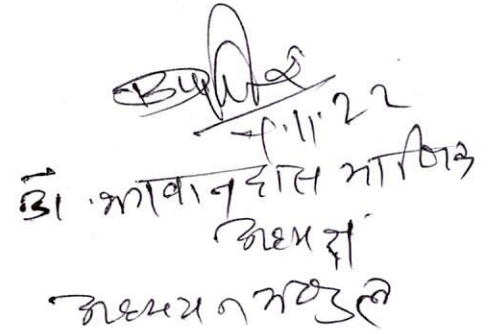 .11.22
डॉ. भगवानदास माणिक
अध्यक्ष
अध्ययन मण्डल